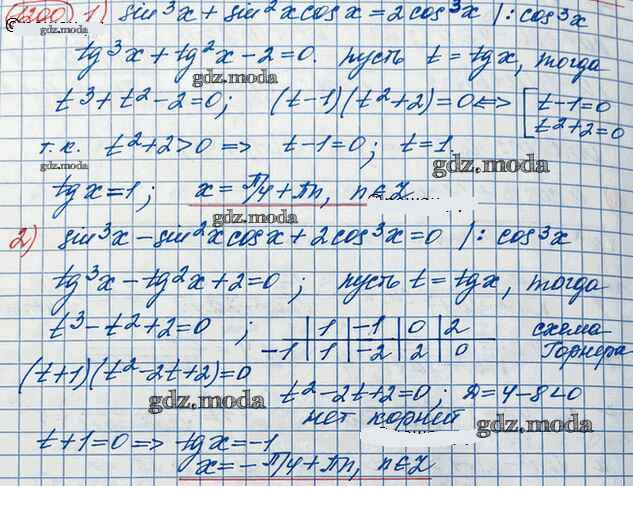 1200 1) sin³x + sin²x cos x = 2 cos³x |: cos³x
tg³x + tg²x - 2 = 0. пусть t = tg x, тогда
gdz.moda
gdz.moda
t³ + t² - 2 = 0; (t-1)(t²+2) = 0 <=> [ t-1=0
t²+2=0
т.к. t²+2>0 => t-1=0; t=1.
gdz.moda
gdz.moda
tg x = 1; x = π/4 + πn, n∈Z
gdz.moda
2) sin³x - sin²x cos x + 2 cos³x = 0 |: cos³x
tg³x - tg²x + 2 = 0; пусть t = tg x, тогда
t³ - t² + 2 = 0; | 1 | -1 | 0 | 2 схема
-1 | 1 | -2 | 2 | 0 Горнера
(t+1)(t²-2t+2)=0
t²-2t+2=0; Д=4-8<0
gdz.moda
нет корней
gdz.moda
t+1=0 => tg x = -1
x = -π/4 + πn, n∈Z